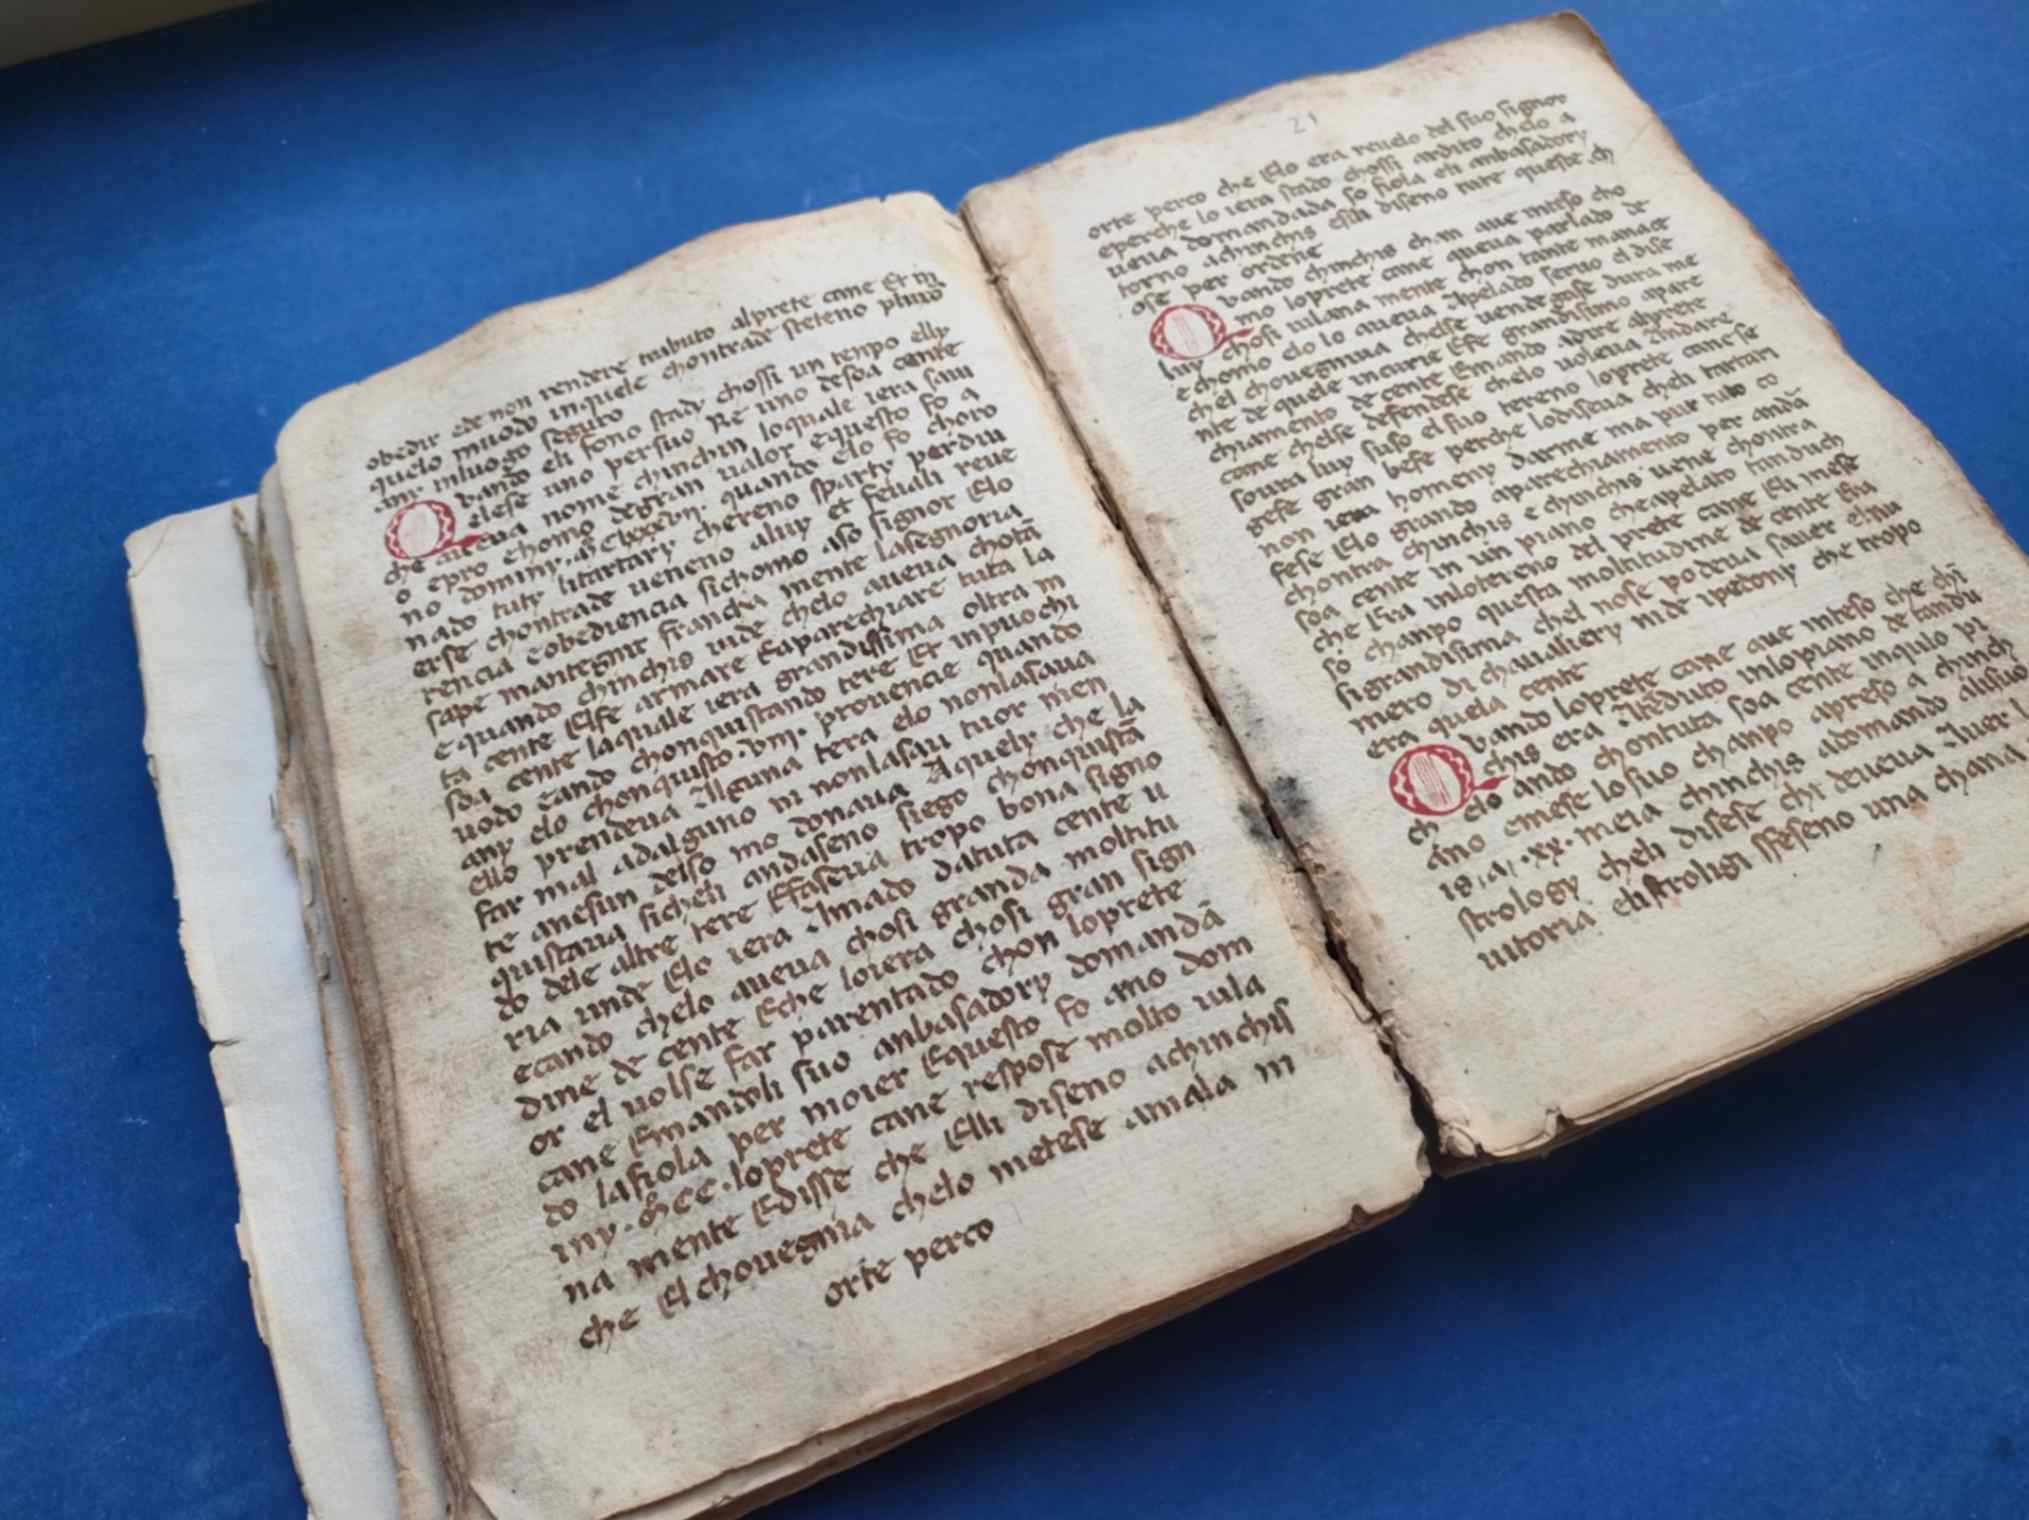 obedir ede non rendere trabuto alprete cane Et in
quelo muodo inquele chontrade steteno pluxo
anr inluogo seguro
Quando eli sono stady chossi un tenpo elly
elese uno persuo Re uno desoa cente
che aueua nome chinchin loquale iera sauı
o epro chomo degran ualor equesto fo a
no dominy. clxxxvii. quando elo fo choro
nado tuty litartary chereno sparty perdiu
erse chontrade ueneno aluy et feuali reue
rencia eobediencia sichomo aso signor Elo
sape mantegnir francha mente lasegnoria
equando chinchis uide chelo aueua chotā
ta cente Elfe armare Eaparechiare tuta la
soa cente laquale iera grandissima oltra m
uodo eando chonquistando tere Et inpuochi
any elo chonquisto .viii. prouencie quando
ello prendeua Alguna tera elo nonlasaua
far mal adalguno ni nonlasau tuor nien
te anesun delso mo donaua Aquely che la
quistaua sicheli andaseno siego chonquistā
do dele altre tere Efaseua tropo bona signo
ria unde Elo iera Amado datuta cente u
ecando chelo aueua chosi granda moltitu
dine de cente Eche loiera chosi gran sign
or el uolse far parentado chon loprete
cane Emandoli suo anbasadory domandā
do lafiola per moier Equesto fo ano dom
iny . cc . loprete cane respose molto uila
na mente Edisse che Elli diseno achinchis
che Elchouegnia chelo metese amala m
orte perco
21
orte perco che Elo era reuelo del suo signor
eperche lo iera stado chossi ardito chelo a
ueua domandada so fiola eli anbasadory
torno achinchis esili diseno tute queste ch
ose per ordene
Quando chinchis chan aue inteso cho
mo loprete cane queua parlado de
luy chosi uilana mente chon tante manace
echomo elo lo aueua Apelado seruo el dise
chel chouegniua chelse uendegase dura me
nte de quele incurie Efe grandissimo apare
chiamento de cente Emando adire alprete
cane chelse defendese chelo uoleua Andare
soura luy suso elsuo tereno loprete cane se
gese gran befe perche lodiseua cheli tartari
non iera homeny darme ma pur tuto co
fese Elo grando aparechiamento per andā
chontra chinchis e chinchis uene chontra
soa cente in un piano cheapelato tanduch
che Era inlotereno del prete cane Eli mese
so chanpo questa moltitudine de cente Era
sigrandisima chel nose podeua sauer elnu
mero di chaualiery nide ipedony che tropo
era quela cente
Quando loprete cane aue inteso che chī
chis era Aredutto inlopiano de tandu
ch elo ando chontuta soa cente inquelo pi
ano emese losuo chanpo apreso a chinch
is .a. xx. meia chinchis adomando alisuo
strology cheli disese chi deueua Auer l
uitoria elistroligi ffeseno una chana